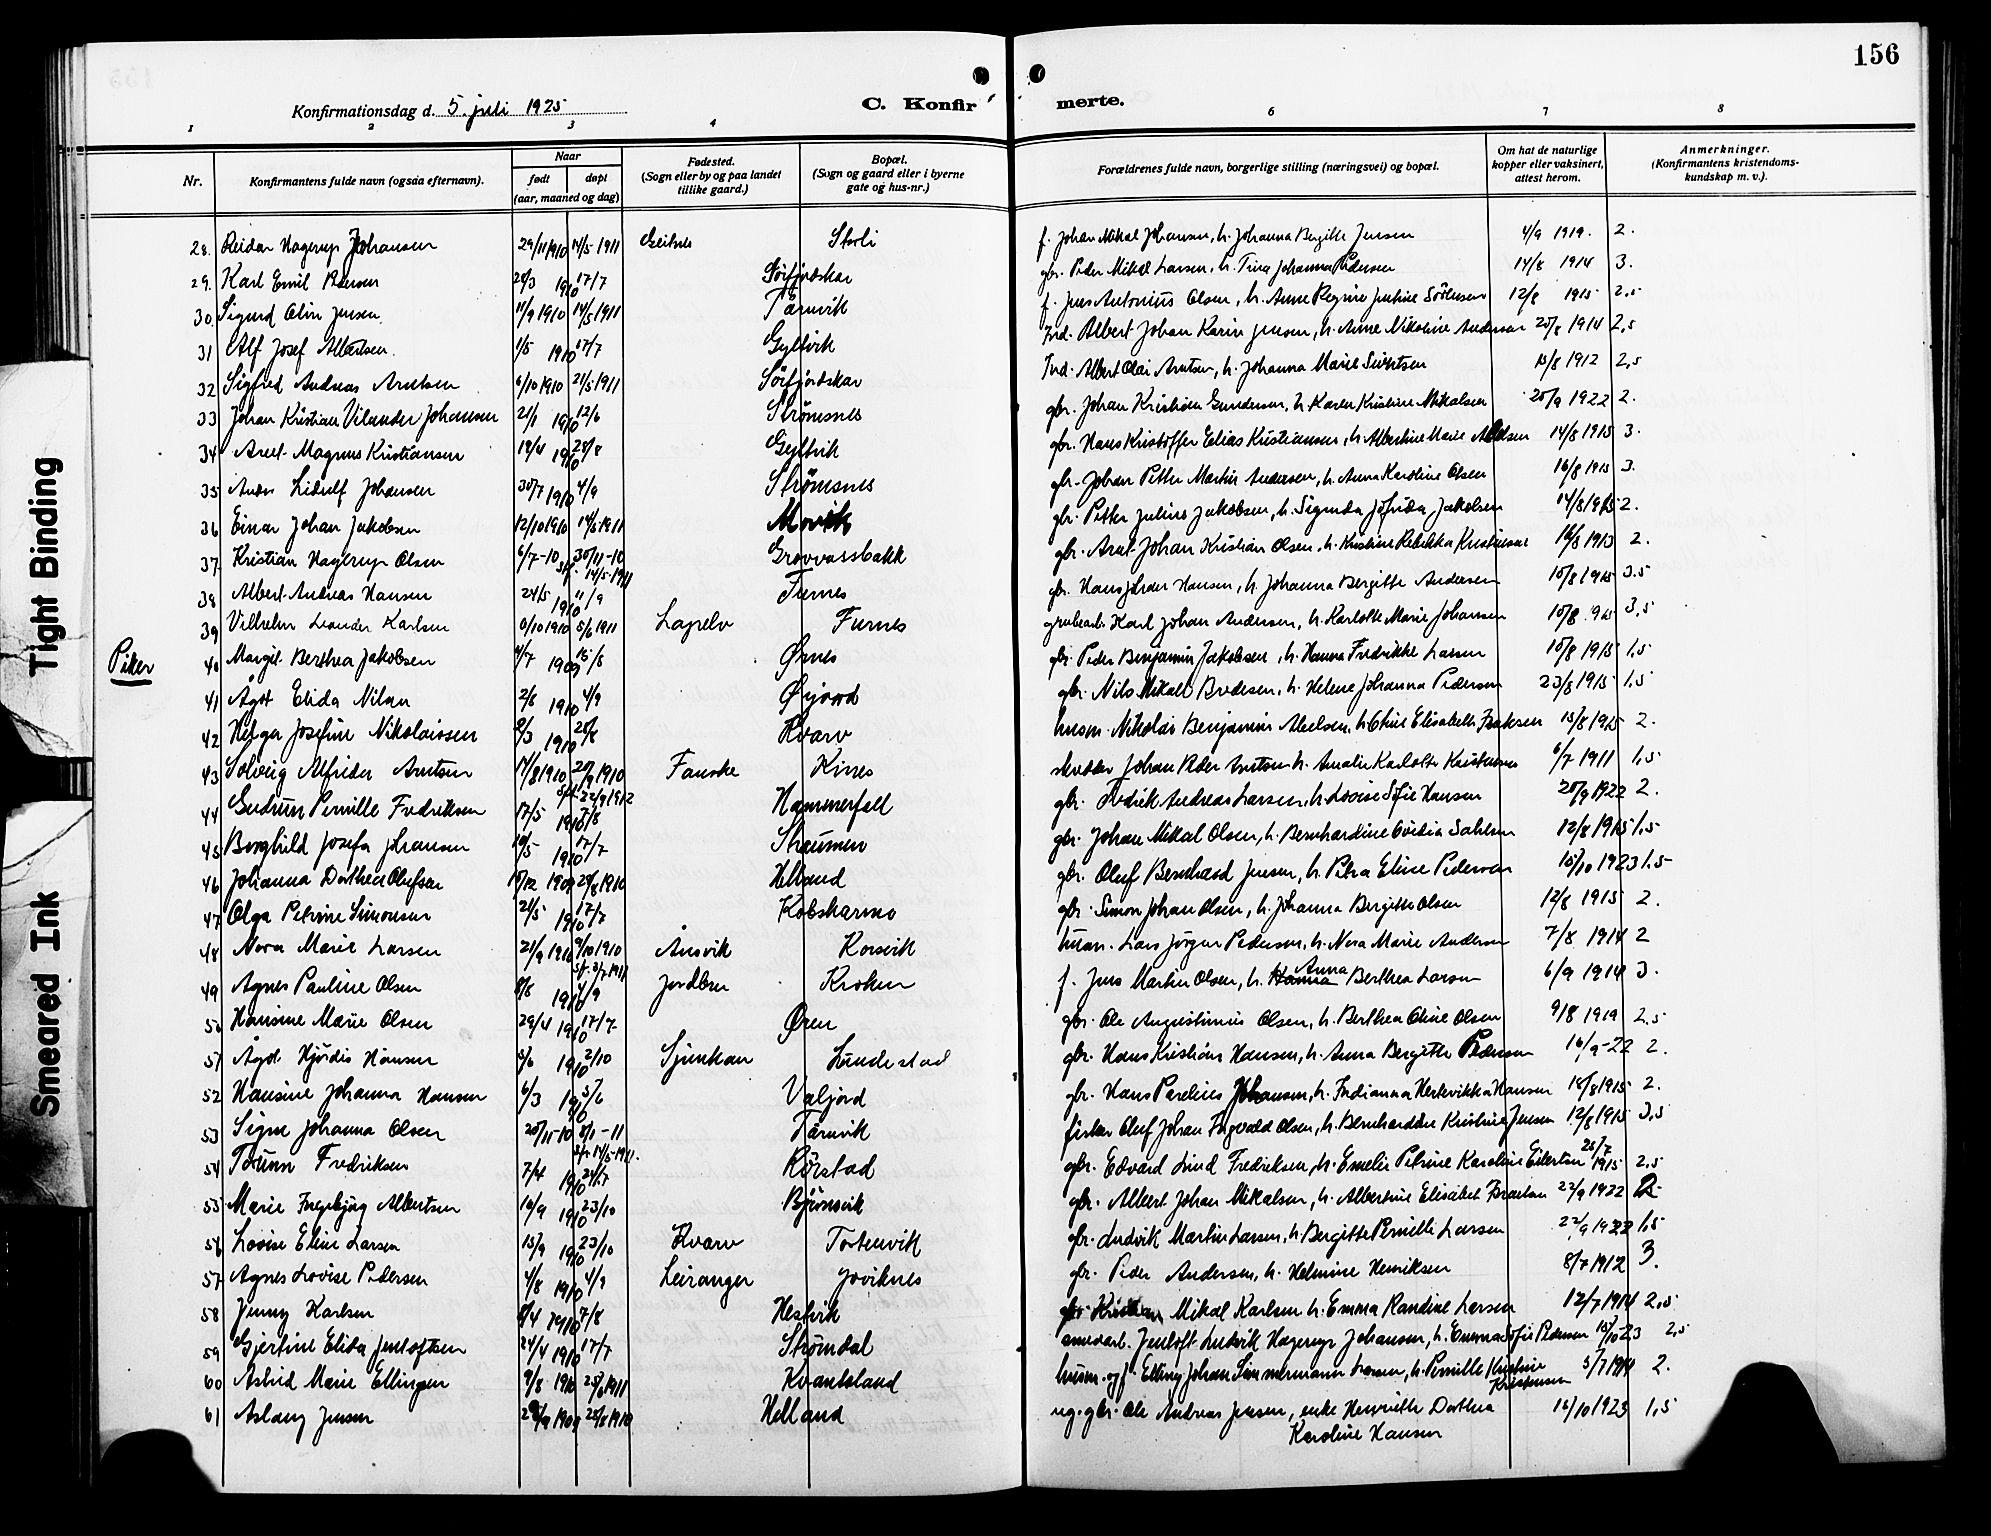 156
Konfirmationsdag d. 5. juli 1925
C. Konfirmerte.
1 2 3 4 6 7 8
Nr. Konfirmantens fulde navn (ogsaa efternavn). Naar født døpt (aar, maaned og dag) Fødested. (Sogn eller by og paa landet tillike gaard.) Bopæl. (Sogn og gaard eller i byerne gate og hus-nr.) Forældrenes fulde navn, borgerlige stilling (næringsvei) og bopæl. Om hat de naturlige kopper eller vaksinert, attest herom. Anmerkninger. (Konfirmantens kristendoms- kundskap m. v.).
28. Reidar Hagerup Johansen 29/11 1910 14/5 1911 Geitnes Storli f. Johan Mikal Johansen, h. Johanna Bergitte Jensen 4/9 1919. 2.
29. Karl Emil Pedersen 1910 17/7 Sörfjordskar gbr. Peder Mikal Larsen, h. Trina Johanna Pedersen 14/8 1914 3.
30. Sigurd Olin Jensen 11/9 1910 14/5 1911 Tårnvik f. Jens Antonius Olsen, h. Anne Regine Justine Sörensen 12/8 1915 2,5
31 Alf Josef Albertsen. 1/5 1910 17/7 Gyltvik Ind. Albert Johan Karin Jensen, h. Anne Nikoline Andersen 25/8 1914 2,5
32 Sigfred Andreas Arntsen 6/10 1910 21/5 1911 Sörfjordskar Ind. Albert Olai Arntsen, h. Johanna Marie Sivertsen 13/8 1912 2,5
33 Johan Kristian Vilander Johansen 21/1 1910 12/6 Strömsnes gbr. Johan Kristian Gundersen, h. Karen Kristine Mikalsen 25/9 1922 2.
34 Arnt Magnus Kristiansen 19/4 1910 28/8 Gyltvik gbr. Hans Kristoffer Elias Kristiansen, h. Albertine Marie 14/8 1915 3.
35 Lidulf Johansen 30/7 1910 4/9 Strömsnes gbr. Johan Petter Martin Andersen, h. Anna Karoline Olsen 16/8 1915 3.
36 Einar Johan Jakobsen 12/10 1910 14/5 1911 Movik gbr. Petter Julius Jakobsen, h. Sigurda Jofrida Jakobsen 14/8 1915 2.
37 Kristian Hagerup Olsen 6/7-10 30/11-10 14/5-1911 Grovvassbakk gbr. Arnt Johan Kristian Olsen, h. Kristine Rebekka Kristiansen 16/8 1913 2.
38 Albert Andreas Hansen 24/5 1910 11/9 Furnes gbr. Hans Johan Hansen, h. Johanna Bergitte Andersen 10/8 1915 3.5
39 Vilhelm Leander Karlsen 1910 5/6 1911 Lapelv Furnes grubearb. Karl Johan Andersen, h. Karlotte Marie Johansen 10/8 3,5
Piker
40 Margit Berthea Jakobsen 4/7 1909 15/8 Ørnes gbr. Peder Benjamin Jakobsen, h. Hanna Fredrikke Larsen 10/8 1915 1,5
41 Ågot Elida Nilsen 2/8 1910 4/9 Øijord gbr. Nils Mikal Brodesen, h. Helene Johanna Pedersen 23/8 1915 1,5
42 Helga Josefine Nikolaissen 1910 28/8 Kvarv husm. Nikolai Benjamin Abelsen, h. Oline Elisabeth Isaksen 15/8 1925 2.
43 Solveig Alfrida Arntsen 17/8 1910 1910 Fauske Kines skredder Johan Peder Arntsen h. Amalie Karlotte Kristensen 6/7 1911 1,5
44 Gudrun Pernille Fredriksen 17/5 1910 7/8 Hammerfall gbr. Fredrik Andreas Larsen, h. Lovise Sofie Hansen 25/9 1922 2.
45 Borghild Josefa Johansen 19/5 1910 17/7 Straumen gbr. Johan Mikal Olsen, h. Bernhardine Ovidia Sahlsen 12/8 1915 1,5
46 Johanna Dorthea Olufsen 1909 28/8 1910 Helland gbr. Oluf Bernhard Jensen, h. Petra Eline Pedersen 15/10 1923 1.5
47 Olga Petrine Simonsen 21/5 1910 17/7 Kobskarmo gbr. Simon Johan Olsen, h. Johanna Bergitte Olsen 12/8 1915 2.
48 Nora Marie Larsen 21/9 1910 9/10 1910 Ånsvik Korsvik husm. Lars Jörgen Pedersen, h. Nora Marie Andersen 7/8 1914 2
49 Agnes Pauline Olsen 8/8 1910 4/9 Jordbru Kroken f. Jens Martin Olsen, h. Anna Berthea Larsen 6/9 1914 3.
50 Hansine Marie Olsen 29/4 1910 17/7 Øren gbr. Ole Augustinius Olsen, h. Berthea Oline Olsen 9/8 1919 2,5
51 Ågot Hjördis Hansen 5/6 1910 2/10 Sjunkan Lundestad gbr. Hans Kristian Hansen, h. Anna Bergitte Pedersen 16/9-22 2.
52 Hansine Johanna Hansen 6/3 1910 5/6 Valjord gbr. Hans Parelius Johansen, h. Indianna Hertvikka Hansen 18/8 1915 2.
53 Signe Johanna Olsen 20/11-10 8/1-11 Tårnvik fisker Oluf Johan Ingvald Olsen, h. Bernhardine Kristine Jensen 12/8 1915 3,5
54 Torunn Fredriksen 7/4 1910 24/7 Rörstad gbr. Edvard Lind Fredriksen, h. Emelie Petrine Karoline Eilertsen 28/7 1915 2,5
55 Marie Ingebjörg Albertsen 10/9 1910 23/10 Björnsvik gbr. Albert Johan Mikalsen, h. Albertine Elisabet 22/9 1922 2
56 Lovise Eline Larsen 15/9 1910 23/10 Kvarv Tortenvik gbr. Ludvik Martin Larsen, h. Bergitte Pernille Larsen 22/9 1922 1,5
57 Agnes Lovise Pedersen 4/8 1910 4/9 Leiranger Joviknes gbr. Peder Andersen, h. Helmine Henriksen 8/7 1912 3.
58 Jenny Karlsen 1910 7/8 Hestvik gbr. Kristian Mikal Karlsen h. Emma Randine Larsen 12/7 1914 2,5
59 Gjertine Elida Jentoftsen 24/4 1910 17/7 Strömdal smedarb. Jentoft Ludvik Hagerup Johansen, h. Emma Sofie Pedersen 15/10 23 2,5
60 Astrid Marie Ellingsen 9/8 1910 25/6 1911 Kvantoland husm. og f. Elling Johan Simmermann Larsen, h. Pernille Kristine Kristensen 5/7 1914 2.
61 Aslaug Jensen 1909 28/8 1910 Helland ug. gbr. Ole Andreas Jensen, enke Henriette Dorthea Karoline Hansen 16/10 1923 1,5
Tight Binding
Smeared Ink